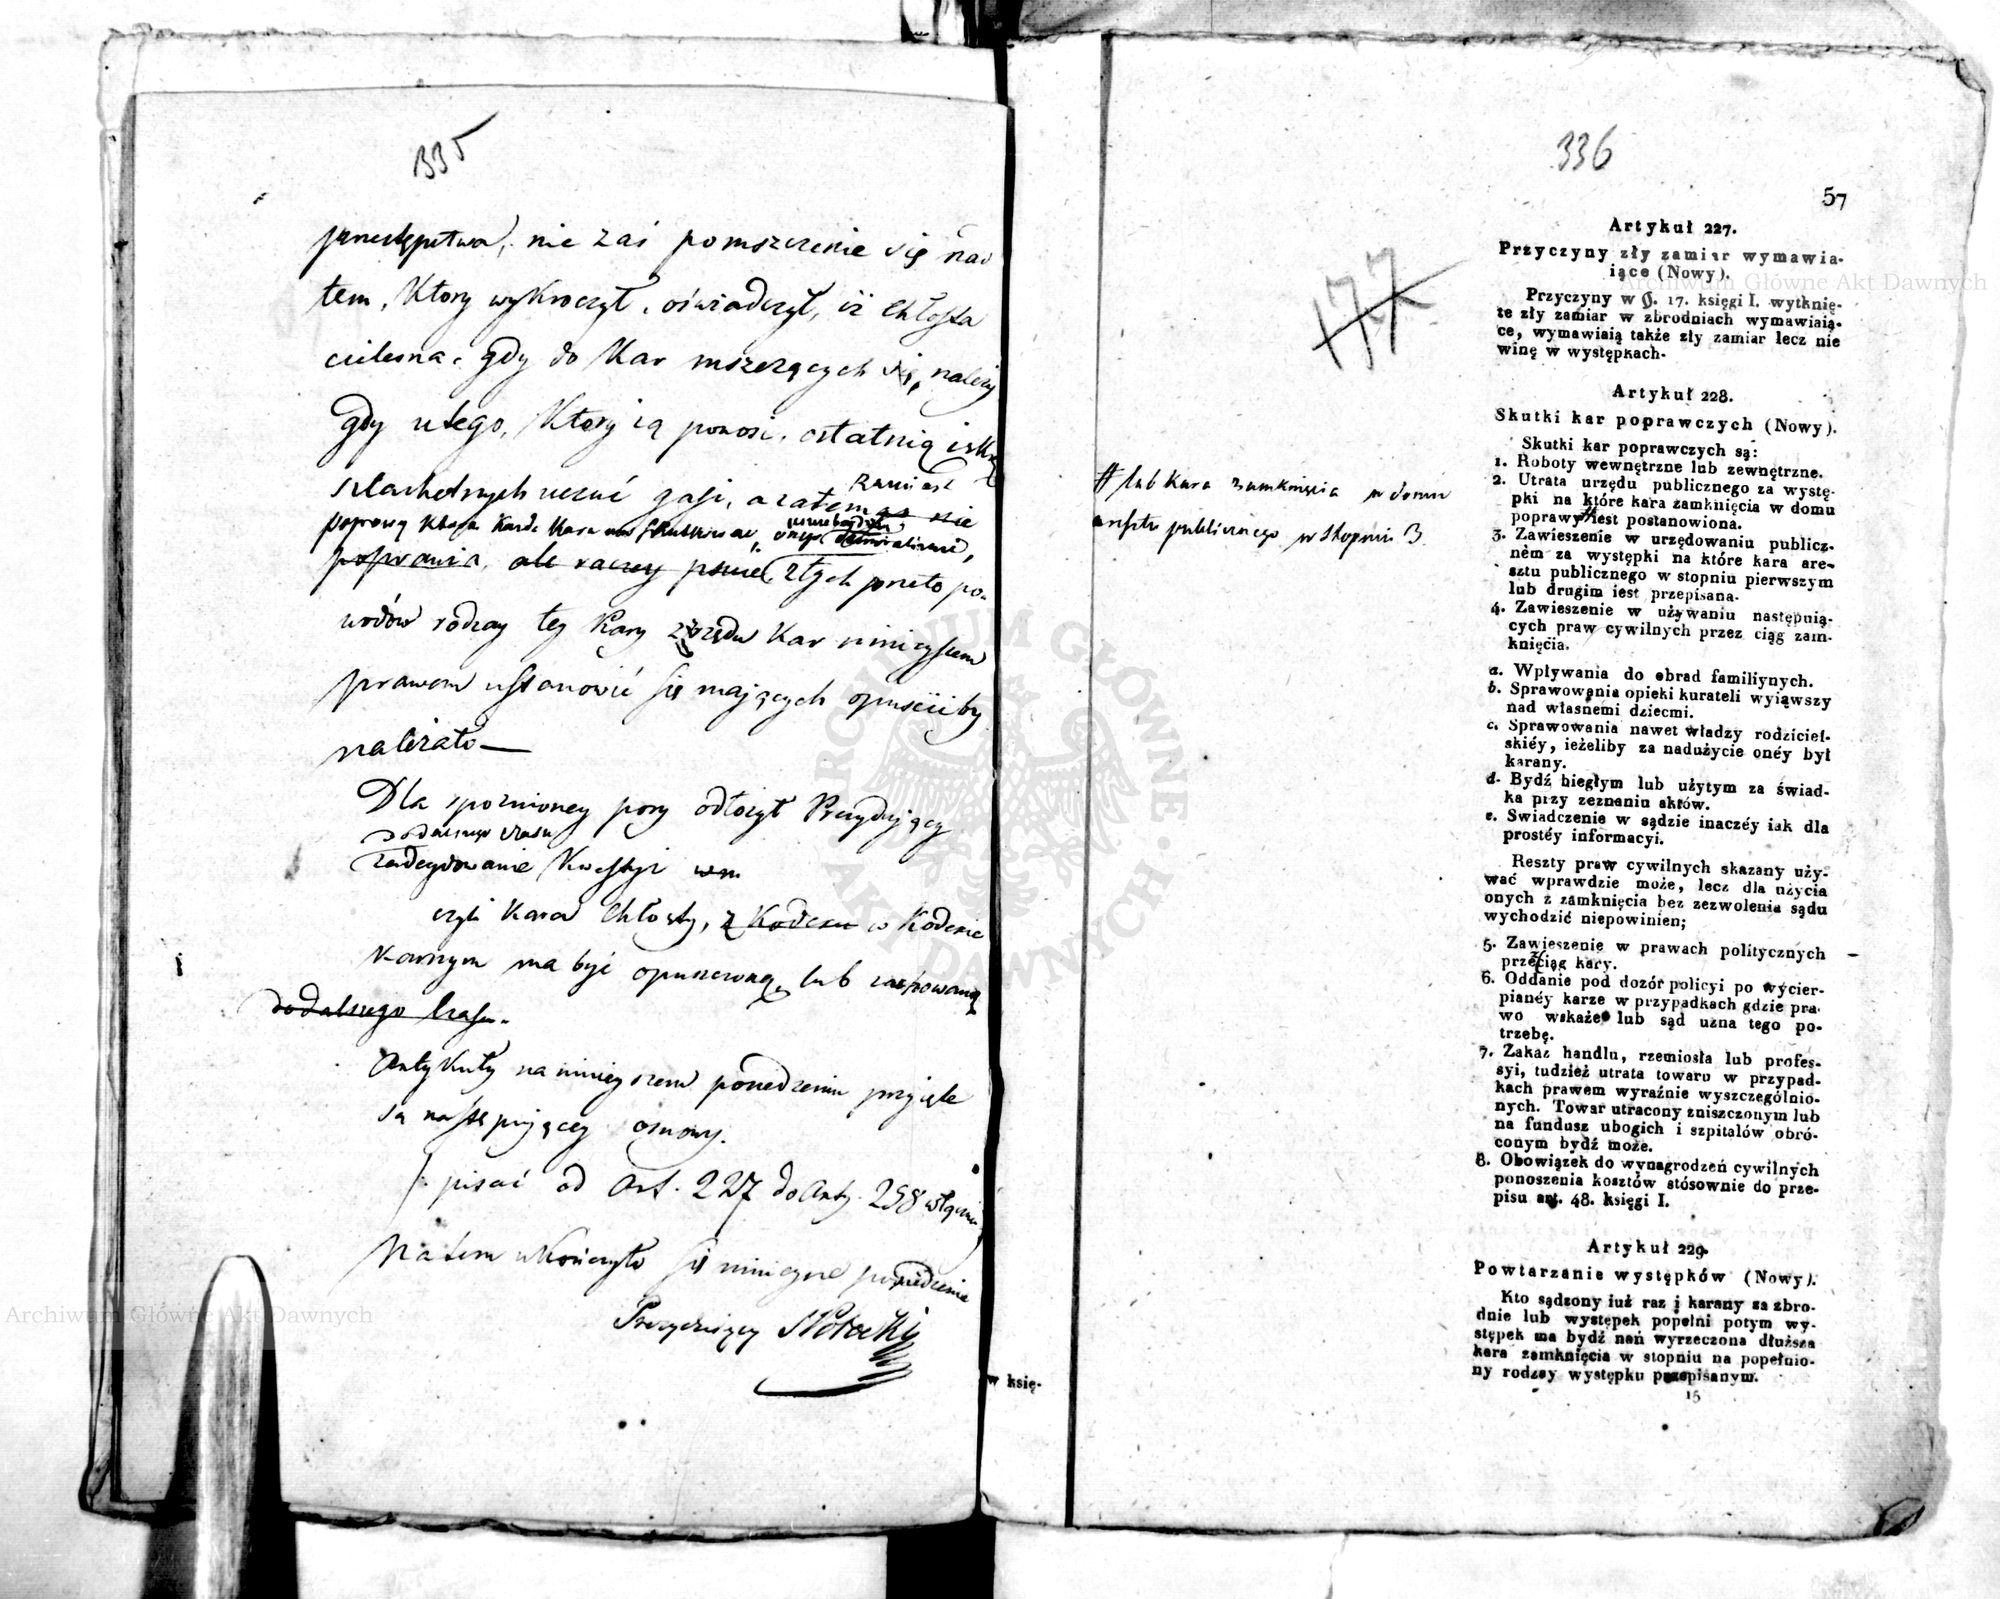 335
przestępstwa, nie zaś pomszczenie się nad
tem, Który wykroczył, oświadczył, iż chłosta
cielesna, gdy do Kar mszczących się, należy
gdy u tego, Który ią ponosi, ostatnią iskrę
szlachetnych uczuć gasi, a zatem nie
Zamiast
poprawy
poprawia, ale raczey psuie, z tych przeto po-
wodów rodzay tey Kary z rzędu Kar ninieyszem
prawem ustanowić się mających opuścić by
należało —
Dla spoznioney pory odłożył Prezyduiący
do dalszego czasu
zadecydowanie Kwestyi
czyli Kara Chłosty, z Kodexu w Kodexie
Karnym ma być opuszczoną, lub zachowaną
do dalszego czasu.
Artykuły na ninieyszem posiedzeniu przyięte
są następuiącey osnowy.
pisać od Art. 227 do Arty. 258 włącznie
Na tem ukończyło się ninieysze posiedzenie
Prezyduiący Potocki
w księ-
336
57
177
# lub Kara zamknięcia w domu
aresztu publicznego w stopniu 3
Artykuł 227.
Przyczyny zły zamiar wymawia-
iące (Nowy).
Przyczyny w §. 17. księgi I. wytknię-
te zły zamiar w zbrodniach wymawiaią-
ce, wymawiaią także zły zamiar lecz nie
winę w występkach.
Artykuł 228.
Skutki kar poprawczych (Nowy).
Skutki kar poprawczych są:
1. Roboty wewnętrzne lub zewnętrzne.
2. Utrata urzędu publicznego za wystę-
pki na które kara zamknięcia w domu
poprawy # iest postanowiona.
3. Zawieszenie w urzędowaniu publicz-
ném za występki na które kara are-
sztu publicznego w stopniu pierwszym
lub drugim iest przepisana.
4. Zawieszenie w używaniu następuią-
cych praw cywilnych przez ciąg zam-
knięcia.
a. Wpływania do obrad familiynych.
b. Sprawowania opieki kurateli wyiąwszy
nad własnemi dziecmi.
c. Sprawowania nawet władzy rodziciel-
skiéy, ieżeliby za nadużycie onéy był
karany.
d. Bydź biegłym lub użytym za świad-
ka przy zeznaniu aktów.
e. Swiadczenie w sądzie inaczéy iak dla
prostéy informacyi.
Reszty praw cywilnych skazany uży-
wać wprawdzie może, lecz dla użycia
onych z zamknięcia bez zezwolenia sądu
wychodzić niepowinien;
5. Zawieszenie w prawach politycznych
przez ciąg kary.
6. Oddanie pod dozór policyi po wycier-
pianéy karze w przypadkach gdzie pra-
wo wskaże lub sąd uzna tego po-
trzebę.
7. Zakaz handlu, rzemiosła lub profes-
syi, tudzież utrata towaru w przypad-
kach prawem wyraźnie wyszczególnio-
nych. Towar utracony zniszczonym lub
na fundusz ubogich i szpitalów obró-
conym bydź może.
8. Obowiązek do wynagrodzeń cywilnych
ponoszenia kosztów stósownie do prze-
pisu art. 48. księgi I.
Artykuł 229.
Powtarzanie występków (Nowy).
Kto sądzony iuż raz i karany za zbro-
dnie lub występek popełni potym wy-
stępek ma bydź nań wyrzeczona dłuższa
kara zamknięcia w stopniu na popełnio-
ny rodzay występku przepisanym.
15
Archiwum Główne Akt Dawnych
Archiwum Główne Akt Dawnych
ARCHIWUM GŁÓWNE AKT DAWNYCH